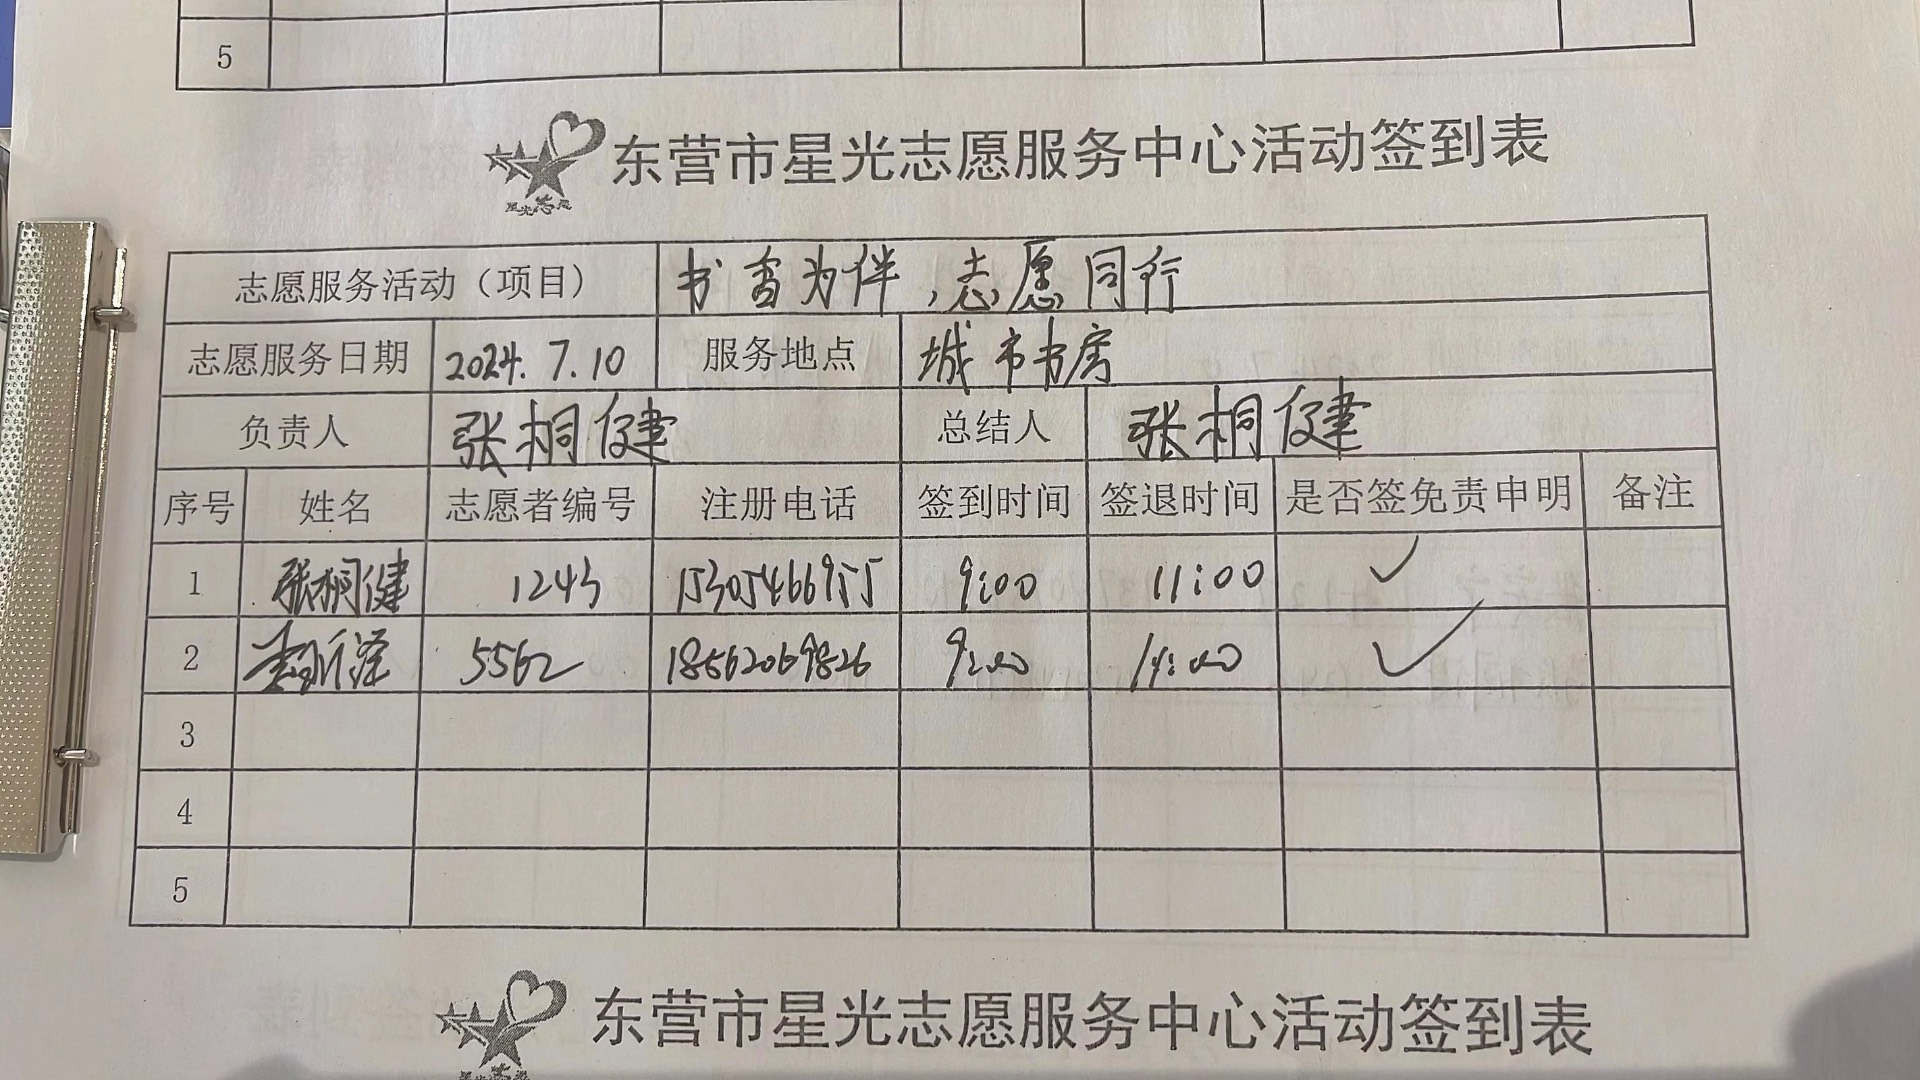 5
东营市星光志愿服务中心活动签到表
星光志愿
志愿服务活动（项目） 书香为伴，志愿同行
志愿服务日期 2024.7.10 服务地点 城市书房
负责人 张桐健 总结人 张桐健
序号 姓名 志愿者编号 注册电话 签到时间 签退时间 是否签免责申明 备注
1 张桐健 1243 15305466955 9:00 11:00 ✓
2 5562 18562069826 9:00 11:00 ✓
3
4
5
东营市星光志愿服务中心活动签到表